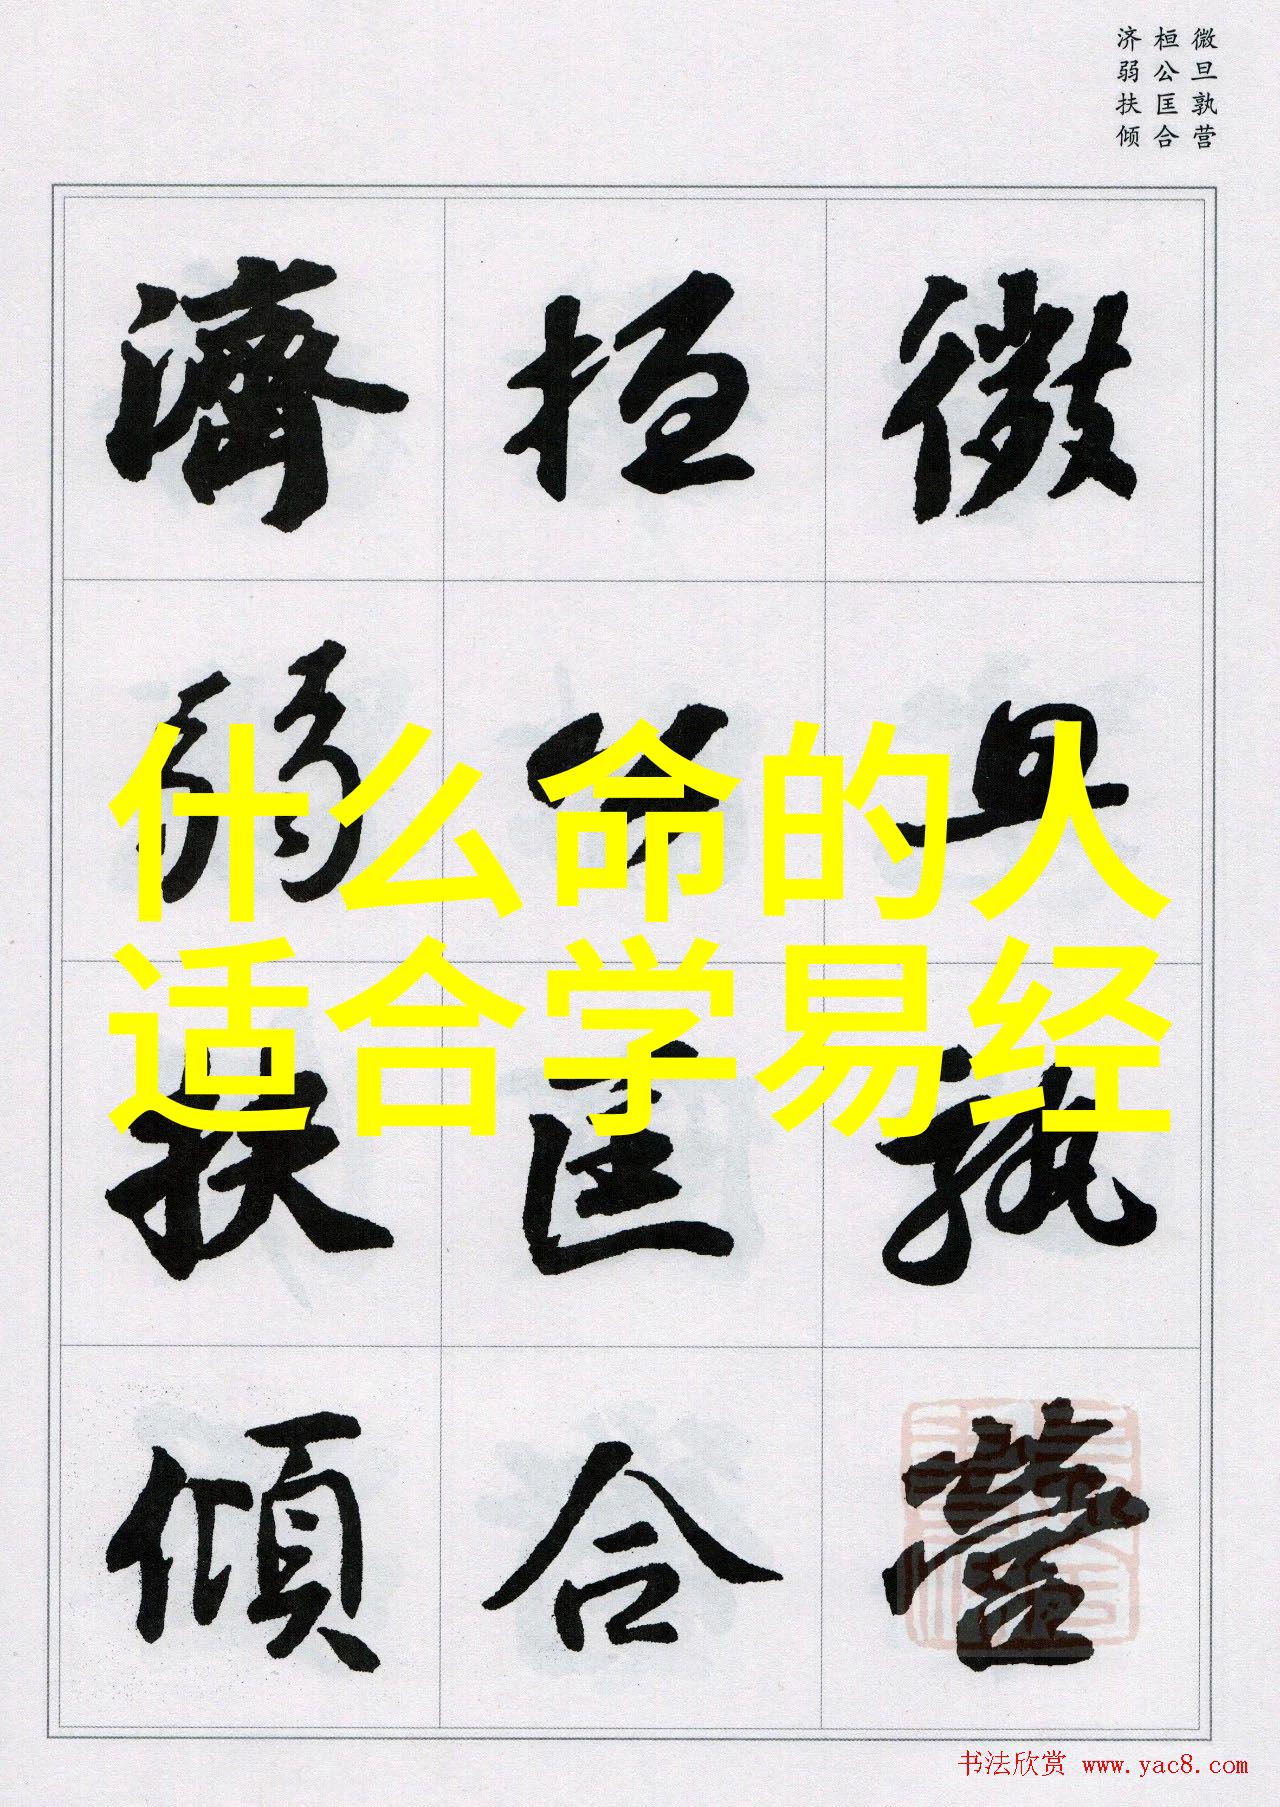 微旦孰营
桓公匡合
济弱扶倾
微旦孰營
桓公匡合
濟弱扶傾
什么命的人
适合学易经
书法欣赏 www.yac8.com